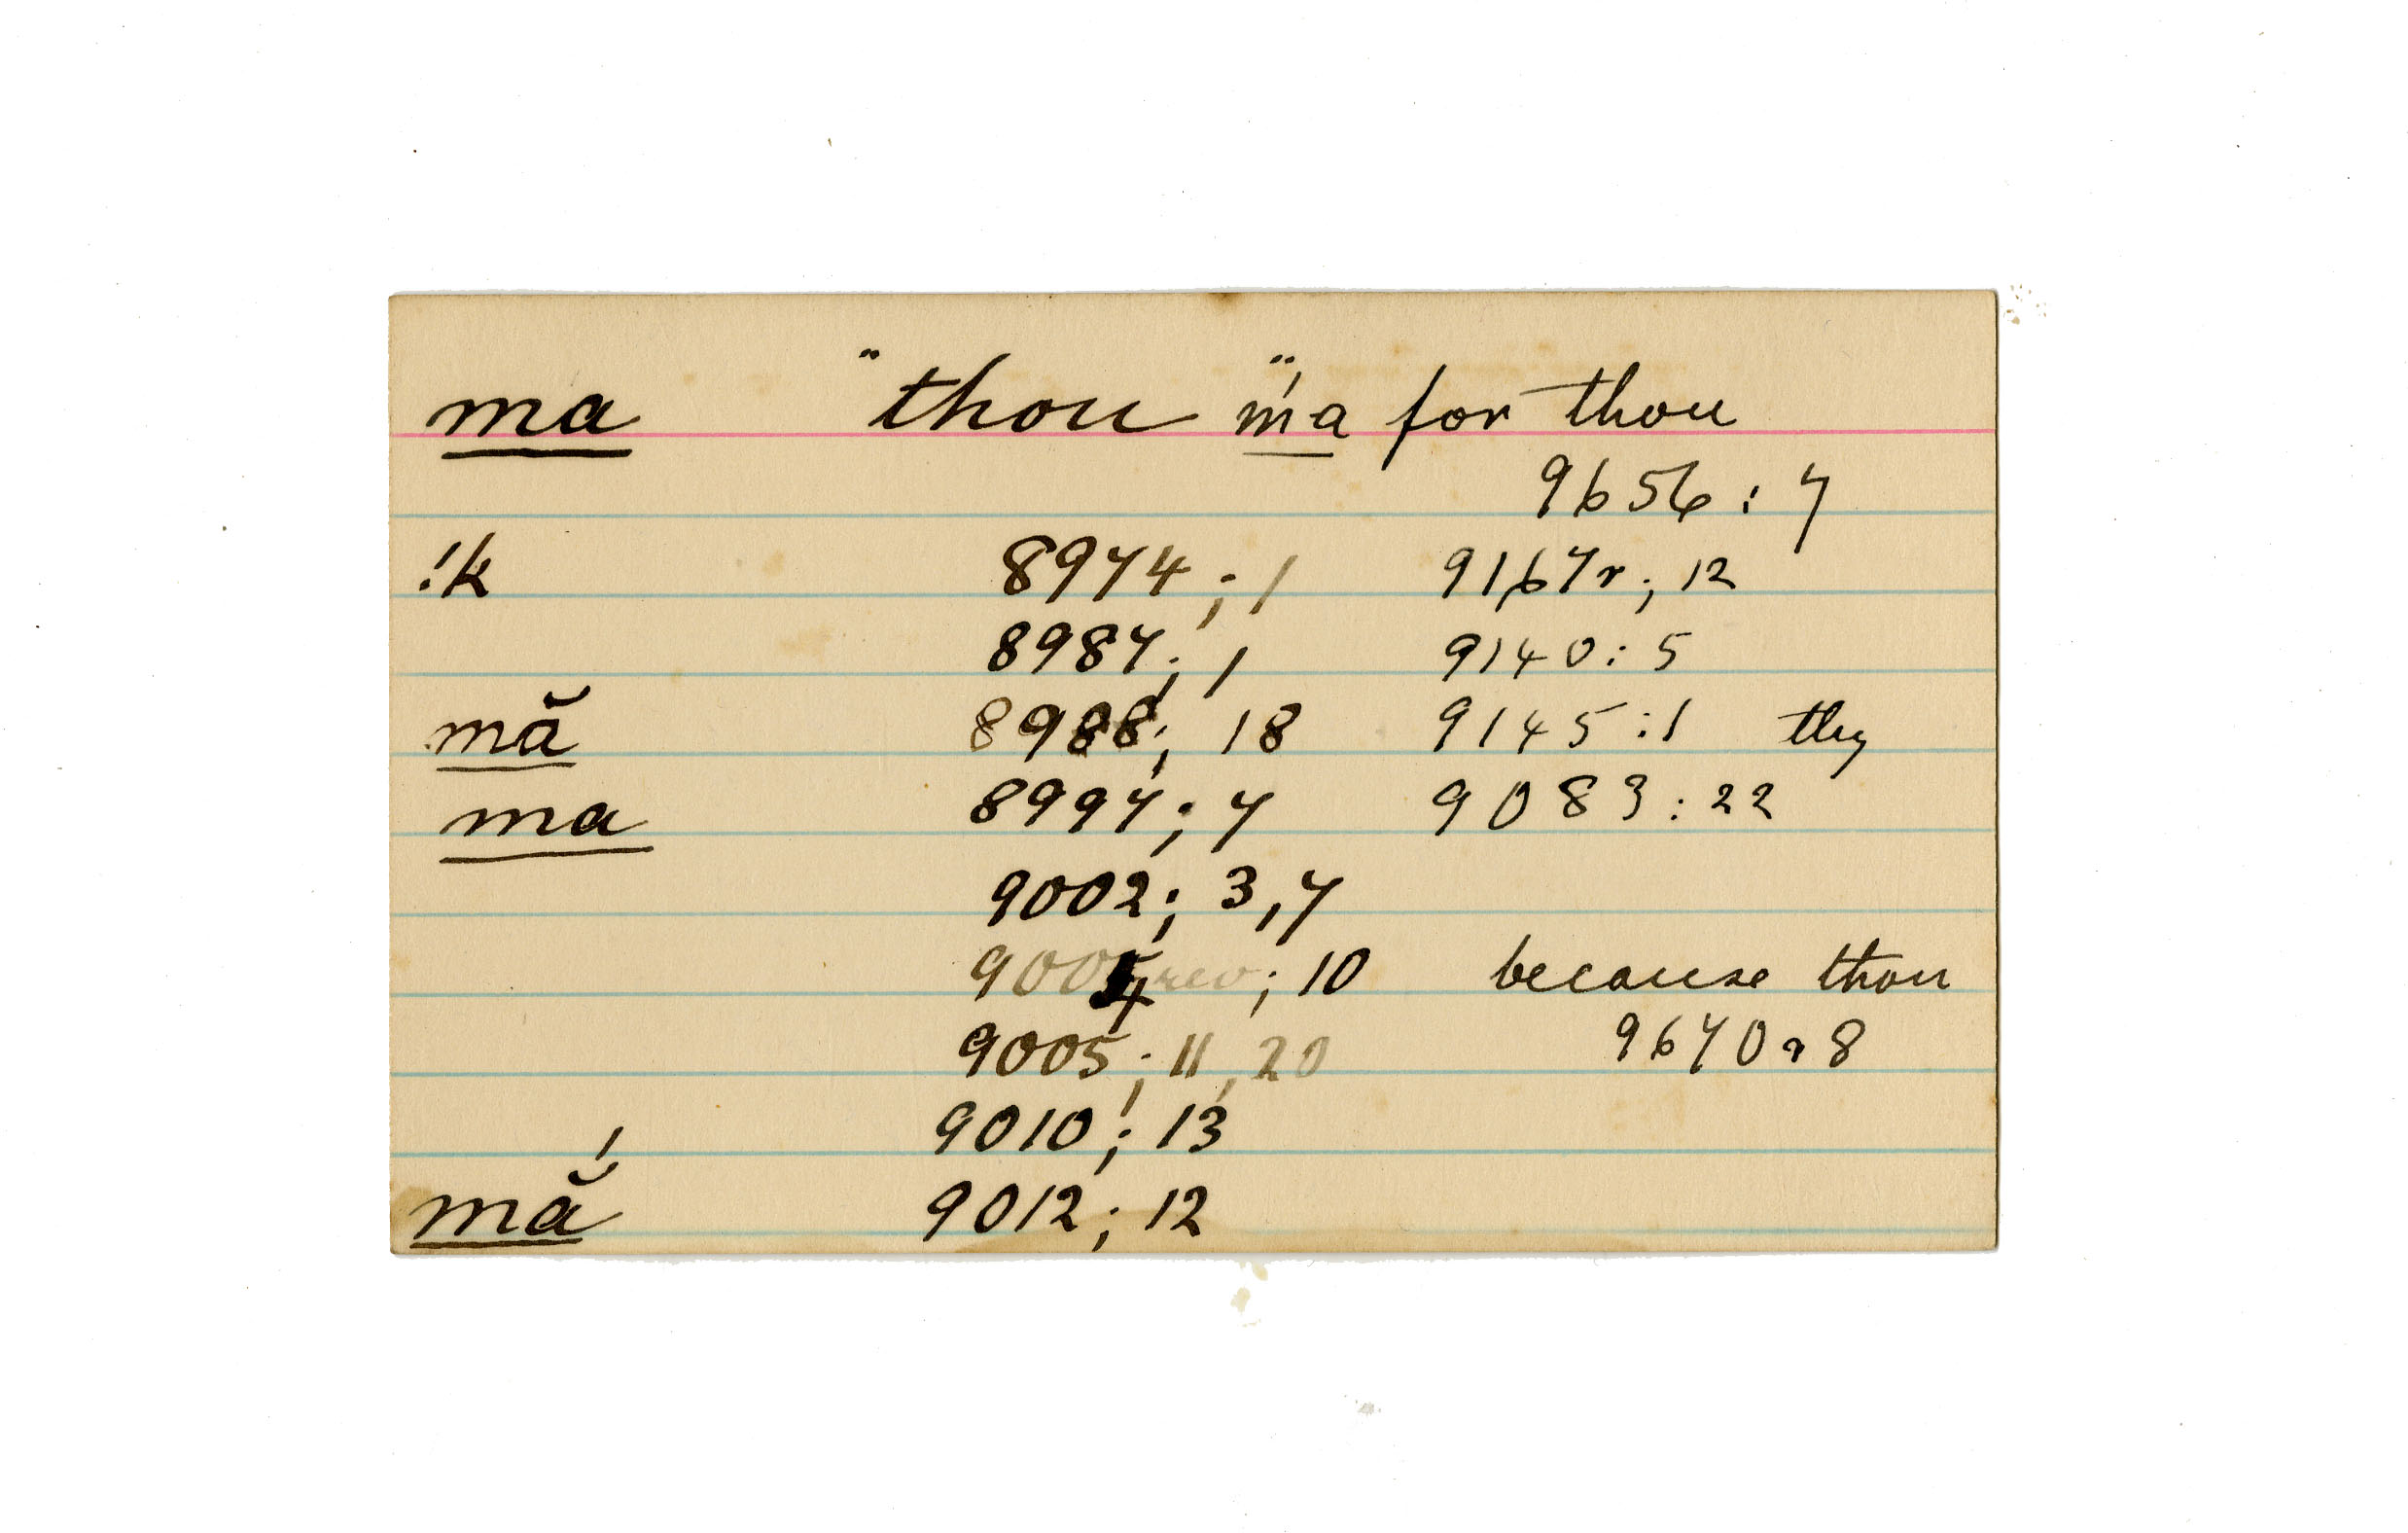 ma "thou" ḿa for thou
9656 : 7
!k 8974 ; 1 9167r ; 12
8987 ; 1 9140 : 5
mă 8988 ; 18 9145 : 1 thy
ma 8997 ; 7 9083 : 22
9002 ; 3, 7
9004 rev ; 10 because thou
9005 ; 11, 20 9670r 8
9010 ; 13
mắ 9012 ; 12